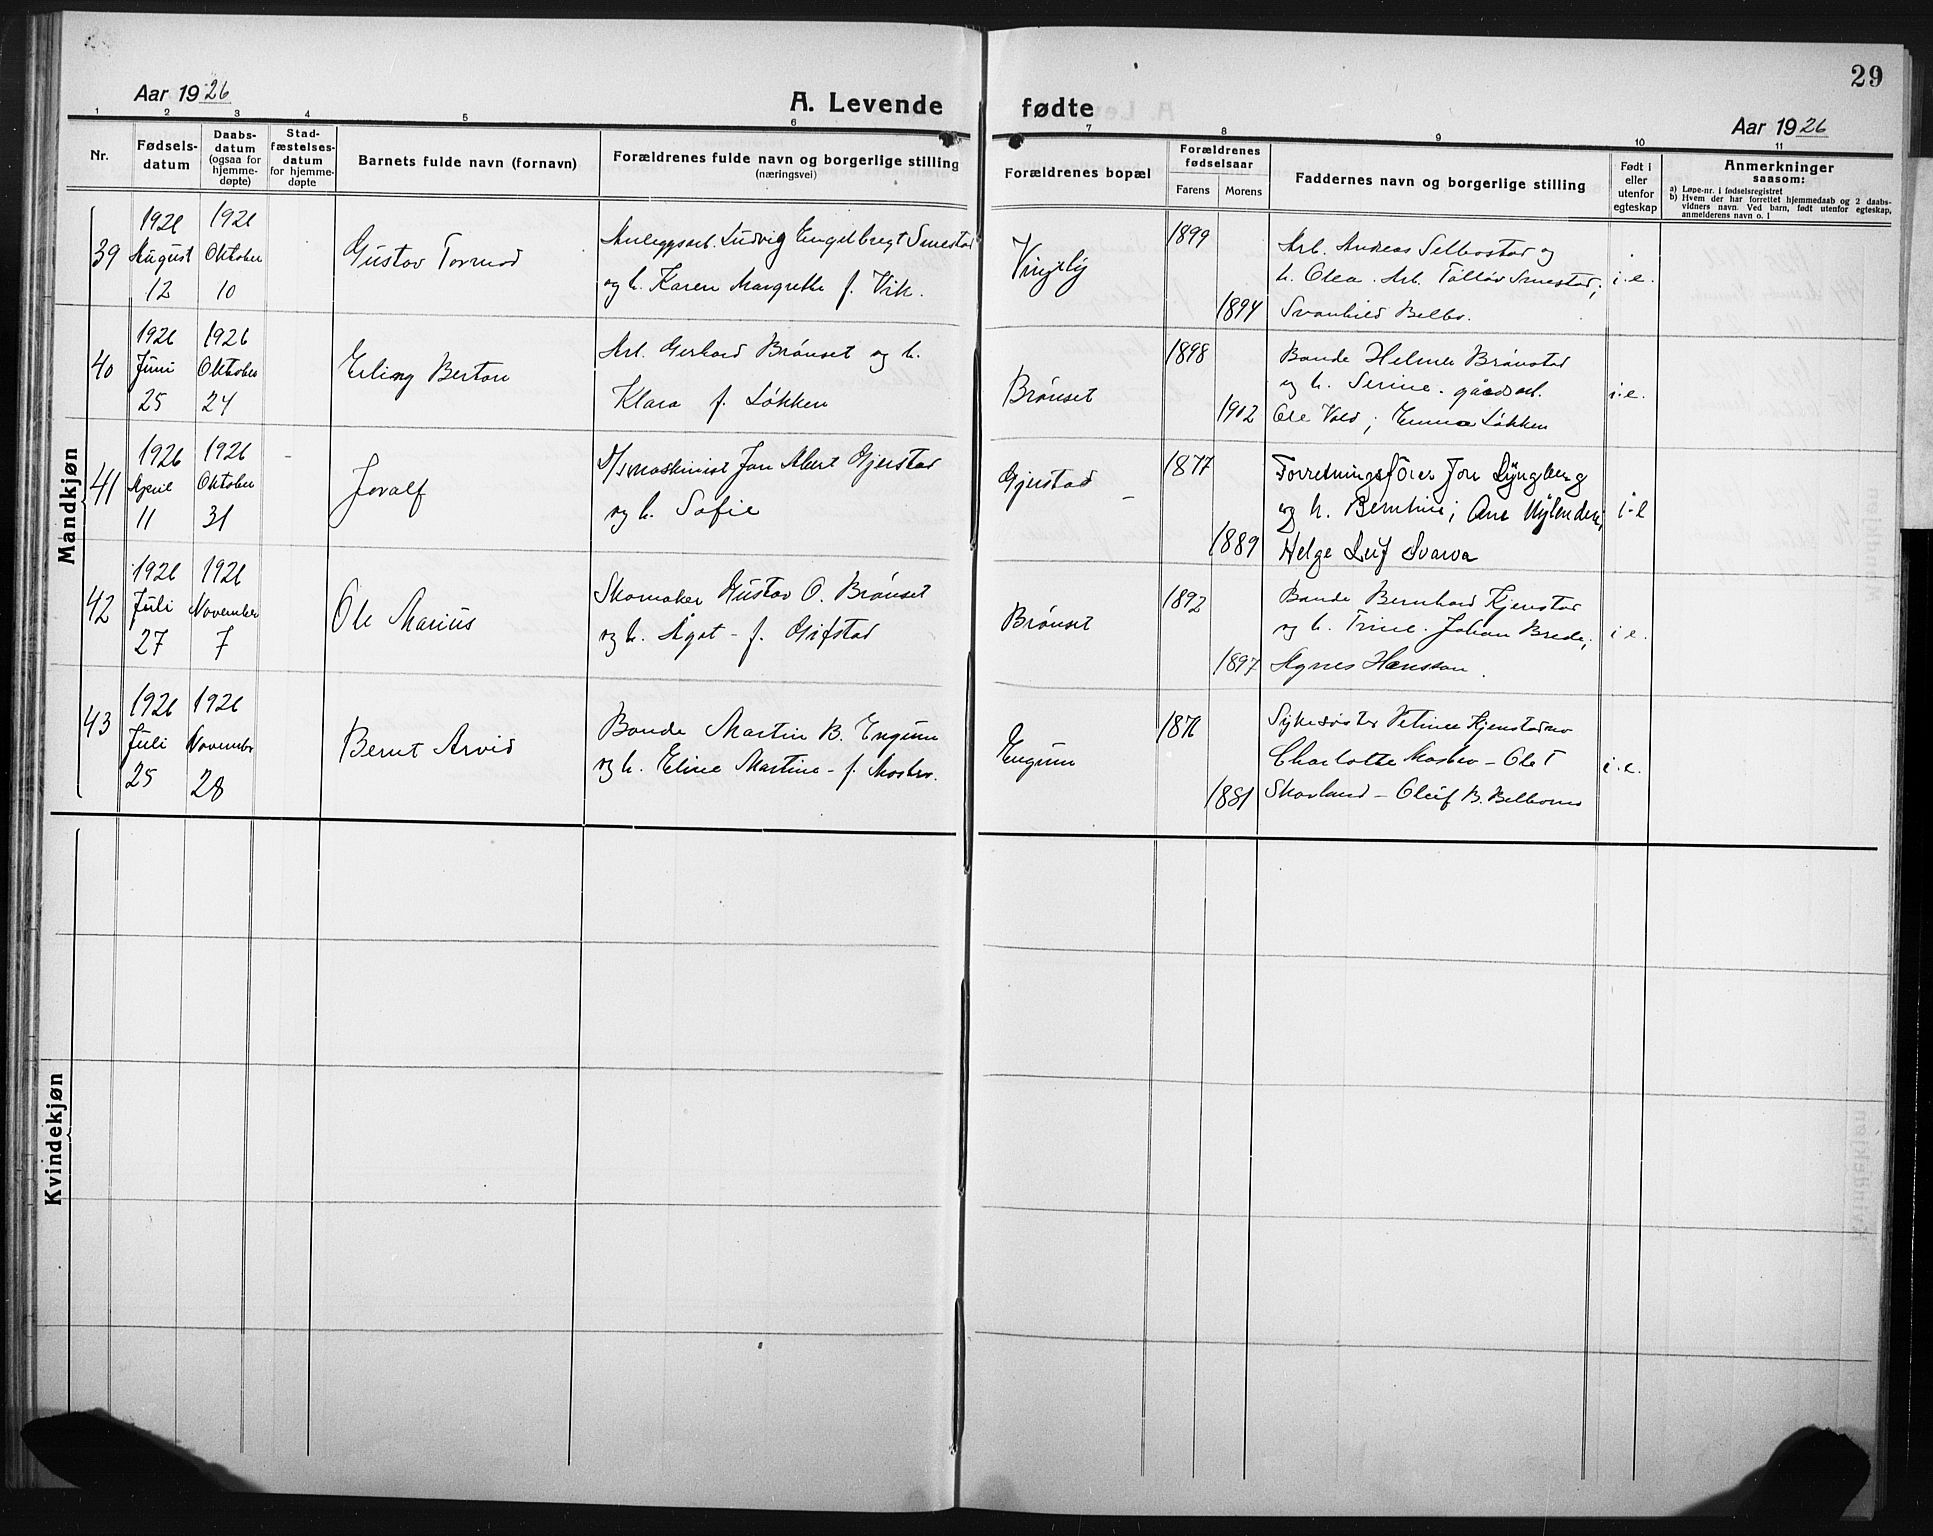 29
Aar 1926
A. Levende fødte
Aar 1926
1 2 3 4 5 6 7 8 9 10 11
Nr.
Fødsels-
datum
Daabs-
datum
(ogsaa for
hjemme-
døpte)
Stad-
fæstelses-
datum
for hjemme-
døpte
Barnets fulde navn (fornavn)
Forældrenes fulde navn og borgerlige stilling
(næringsvei)
Forældrenes bopæl
Forældrenes
fødselsaar
Farens Morens
Faddernes navn og borgerlige stilling
Født i
eller
utenfor
egteskap
Anmerkninger
saasom:
a) Løpe-nr. i fødselsregistret
b) Hvem der har forrettet hjemmedaab og 2 daabs-
vidners navn. Ved barn, født utenfor egteskap,
anmelderens navn o. l
Mandkjøn
39
1926
August
12
1926
Oktober
10
Gustav Tormod
Anleggsarb. Ludvig Engelbregt Smestad
og h. Karen Margrethe f. Vik.
1899
1894
Arb. Andreas Selbostad og
h. Olea. Arb. Tollöv Smestad;
Svanhild Belbo.
i.e.
40
1926
Juni
25
1926
Oktober
24
Erling Berton
Arb. Gerhard Brønset og h.
Klara f. Løkken
Brønset
1898
1902
Bonde Helmer Brønstad
og h. Serine. gårdsarb.
Ole Vold; Emma Løkken
i.e.
41
1926
April
11
1926
Oktober
31
Joralf
D/smaskinist Jon Albert Gjerstad
og h. Sofie
Gjerstad
1877
1889
Forretningsfører Jon Lyngberg
og h. Berntine; Ane
Helge Leif Svarva
i-e
42
1926
Juli
27
1926
November
7
Ole Marius
Skomaker Gustav O. Brønset
og h. Ågot - f. Gifstad
Brønset
1892
1897
Bonde Bernhard Kjenstad
og h. Trine. Johan Brede;
Agnes Hansson.
i e.
43
1926
Juli
25
1926
November
28
Bernt Arvid
Bonde Martin B. Engum
og h. Eline Martine - f. Mosbro.
Engum
1876
1881
Sykesøster Petrine
Charlotte Mosbro - Ole T
Skavland - Oleif B.
i.e.
Kvindekjøn